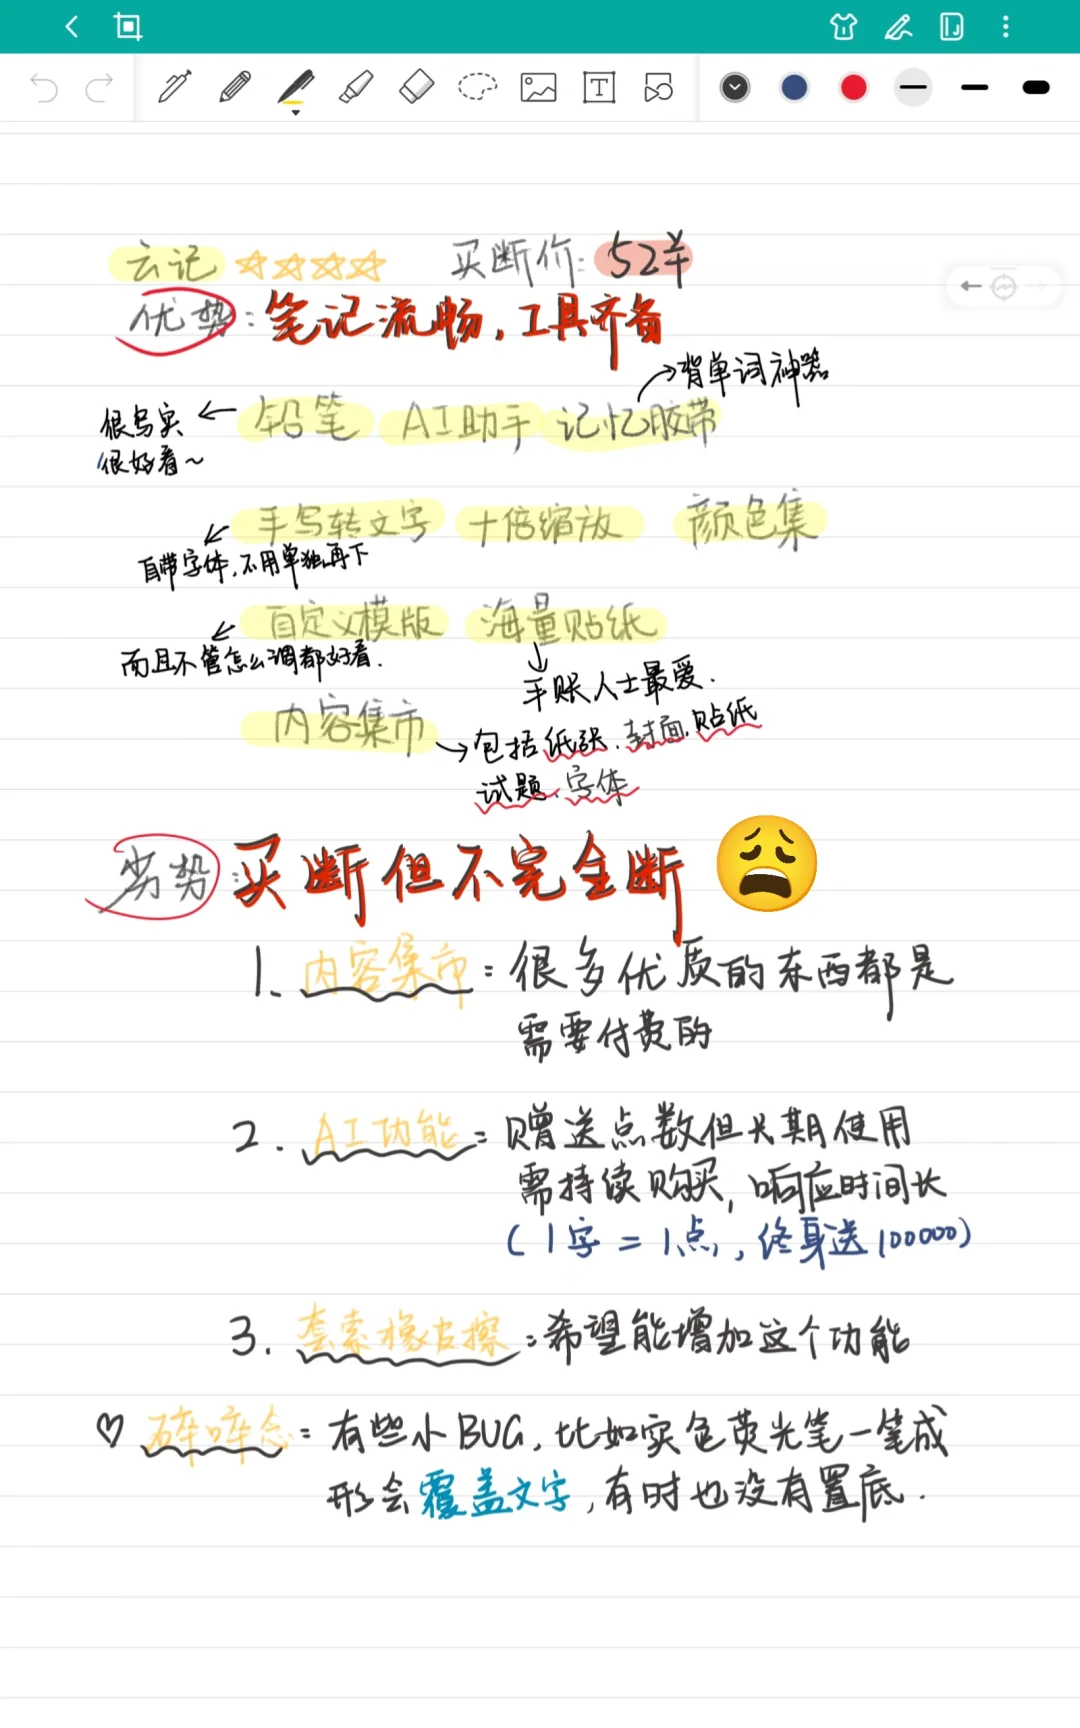 云记 ☆☆☆☆ 买断价: 52羊
优势: 笔记流畅, 工具齐备
背单词神器
铅笔 AI助手 记忆胶带
很写实
很好看~
手写转文字 十倍缩放 颜色集
自带字体, 不用单独再下
自定义模版 海量贴纸
而且不管怎么调都好看.
手账人士最爱.
内容集市
包括纸张、封面、贴纸
试题、字体
劣势: 买断但不完全断 😩
1、内容集市: 很多优质的东西都是
需要付费的
2. AI功能: 赠送点数但长期使用
需持续购买, 响应时间长
(1字=1点, 终身送100000)
3. 套索橡皮擦: 希望能增加这个功能
♡ 碎碎念: 有些小BUG, 比如实色荧光笔一笔成
形会覆盖文字, 有时也没有置底.